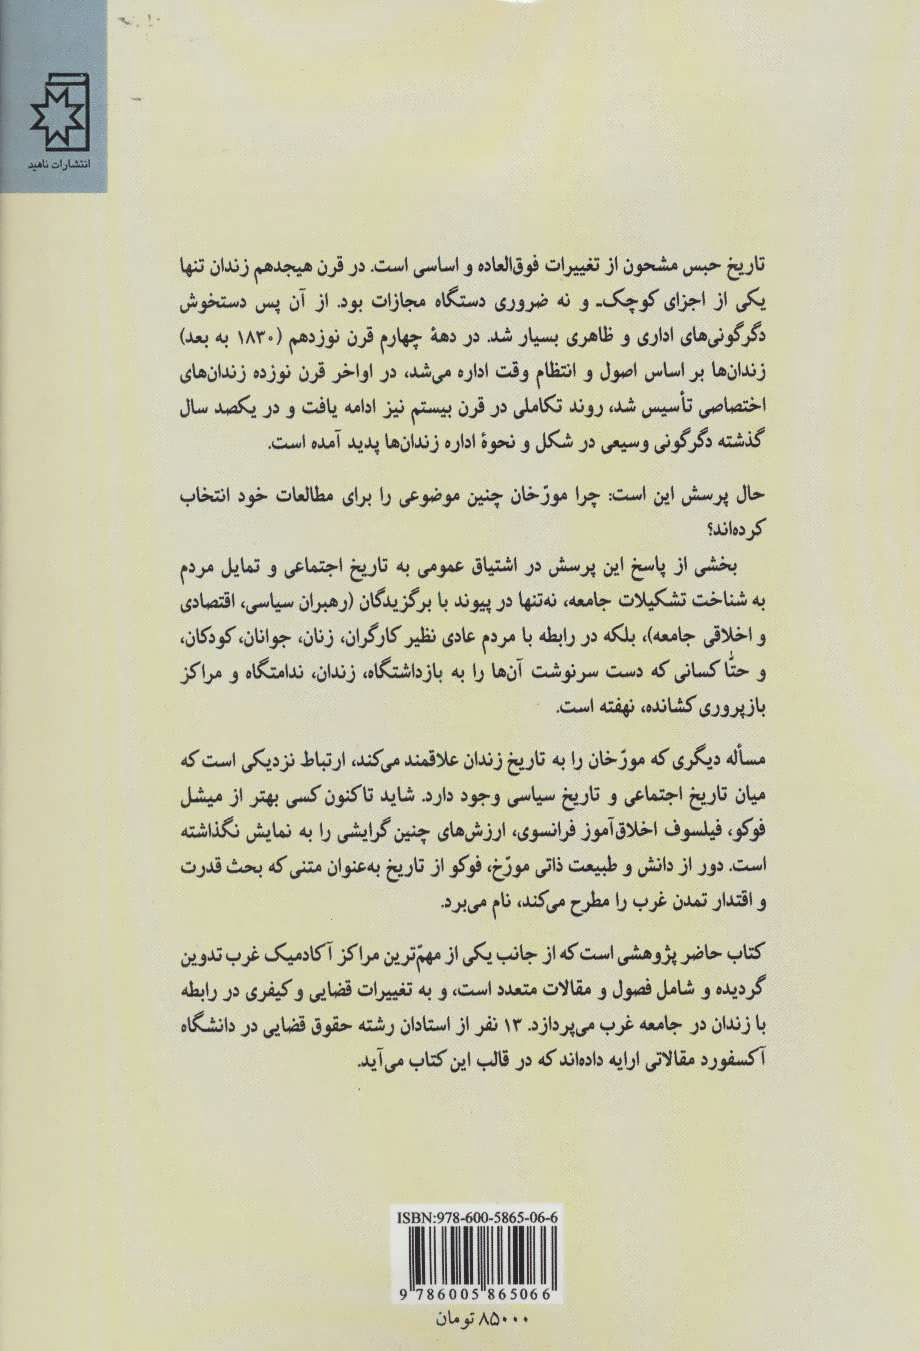 انتشارات ناهید
تاریخ حبس مشحون از تغییرات فوق‌العاده و اساسی است. در قرن هیجدهم زندان تنها
یکی از اجزای کوچک- و نه ضروری دستگاه مجازات بود. از آن پس دستخوش
دگرگونی‌های اداری و ظاهری بسیار شد. در دههٔ چهارم قرن نوزدهم (۱۸۳۰ به بعد)
زندان‌ها بر اساس اصول و انتظام وقت اداره می‌شد، در اواخر قرن نوزده زندان‌های
اختصاصی تأسیس شد، روند تکاملی در قرن بیستم نیز ادامه یافت و در یکصد سال
گذشته دگرگونی وسیعی در شکل و نحوهٔ اداره زندان‌ها پدید آمده است.
حال پرسش این است: چرا مورّخان چنین موضوعی را برای مطالعات خود انتخاب
کرده‌اند؟
بخشی از پاسخ این پرسش در اشتیاق عمومی به تاریخ اجتماعی و تمایل مردم
به شناخت تشکیلات جامعه، نه‌تنها در پیوند با برگزیدگان (رهبران سیاسی، اقتصادی
و اخلاقی جامعه)، بلکه در رابطه با مردم عادی نظیر کارگران، زنان، جوانان، کودکان،
و حتّا کسانی که دست سرنوشت آن‌ها را به بازداشتگاه، زندان، ندامتگاه و مراکز
بازپروری کشانده، نهفته است.
مسأله دیگری که مورّخان را به تاریخ زندان علاقمند می‌کند، ارتباط نزدیکی است که
میان تاریخ اجتماعی و تاریخ سیاسی وجود دارد. شاید تاکنون کسی بهتر از میشل
فوکو، فیلسوف اخلاق‌آموز فرانسوی، ارزش‌های چنین گرایشی را به نمایش نگذاشته
است. دور از دانش و طبیعت ذاتی مورّخ، فوکو از تاریخ به‌عنوان متنی که بحث قدرت
و اقتدار تمدن غرب را مطرح می‌کند، نام می‌برد.
کتاب حاضر پژوهشی است که از جانب یکی از مهمّ‌ترین مراکز آکادمیک غرب تدوین
گردیده و شامل فصول و مقالات متعدد است، و به تغییرات قضایی و کیفری در رابطه
با زندان در جامعه غرب می‌پردازد. ۱۳ نفر از استادان رشته حقوق قضایی در دانشگاه
آکسفورد مقالاتی ارایه داده‌اند که در قالب این کتاب می‌آید.
ISBN:978-600-5865-06-6
9 786005 865066
۸۵۰۰۰ تومان